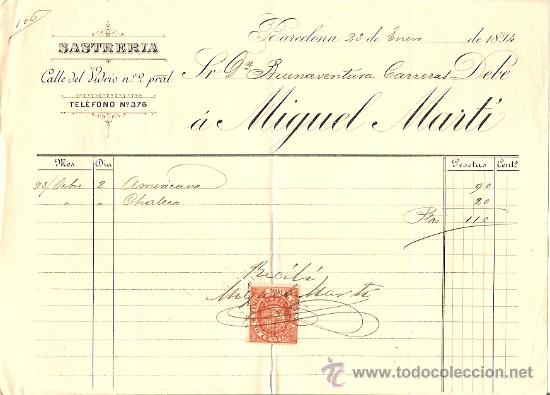 106
SASTRERIA
Calle del Vidrio nº 2 pral
TELÉFONO Nº 376
Barcelona 23 de Enero de 1894
Sr. Dn. Buenaventura Carreras Debe
á Miguel Martí
Mes Dia Pesetas Cents
93/ Octbre 2 Americana 90
" " Chaleco 20
Ptas 110
Recibí
Miguel Martí
www.todocoleccion.net